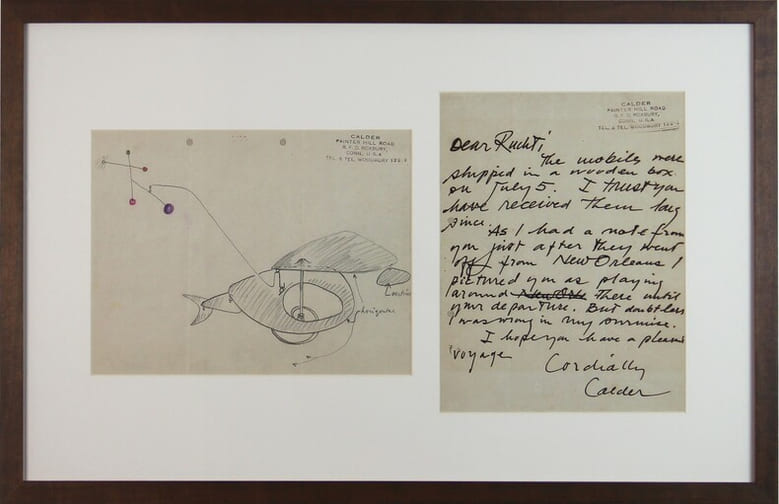 CALDER
PAINTER HILL ROAD
R. F. D. ROXBURY,
CONN. U.S.A.
TEL. & TEL. WOODBURY 122-2
phongue
CALDER
PAINTER HILL ROAD
R. F. D. ROXBURY,
CONN. U.S.A.
TEL. & TEL. WOODBURY
Dear Ruchti
The mobiles were
shipped in a wooden box
on July 5. I trust you
have received them long
since.
As I had a note from
you just after they went
off from New Orleans I
pictured you as playing
around there until
your departure. But doubtless
I was wrong in my surmise.
I hope you have a pleasant
voyage
Cordially
Calder